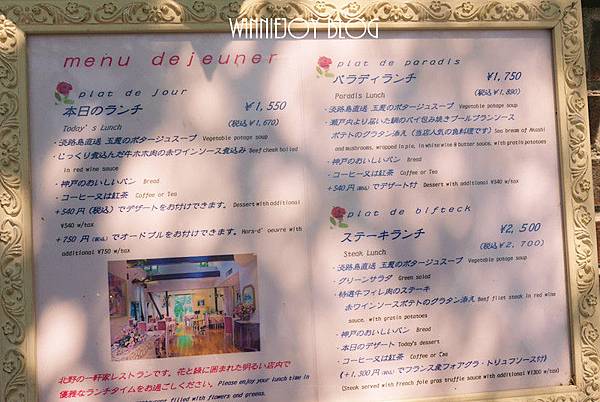 WINNIEJOY BLOG
menu dejeuner
plat de jour
本日のランチ ¥1,550
Today's Lunch (税込¥1,670)
・淡路島直送 玉葱のポタージュスープ Vegetable potage soup
・じっくり煮込んだ牛ホホ肉の赤ワインソース煮込み Beef cheek boiled
in red wine sauce
・神戸のおいしいパン Bread
・コーヒー又は紅茶 Coffee or Tea
+540円(税込)でデザートをお付けできます。 Dessert with additional
¥540 w/tax
+750円(税込)でオードブルをお付けできます。 Hors-d' oeuvre with
additional ¥750 w/tax
北野の一軒家レストランです。花と緑に囲まれた明るい店内で
優雅なランチタイムをお過ごしください。 Please enjoy your lunch time in
filled with flowers and greens.
plat de paradis
パラディランチ ¥1,750
Paradis Lunch (税込¥1,890)
・淡路島直送 玉葱のポタージュスープ Vegetable potage soup
・瀬戸内より届いた鯛のパイ包み焼きブールブランソース
ポテトのグラタン添え(当店人気の魚料理です) Sea bream of Akashi
and mushrooms, wrapped in pie, in white wine & butter sauce, with gratin
potatoes
・神戸のおいしいパン Bread
・コーヒー又は紅茶 Coffee or Tea
+540円(税込)でデザート付 Dessert with additional ¥540 w/tax
plat de bifteck
ステーキランチ ¥2,500
Steak Lunch (税込¥2,700)
・淡路島直送 玉葱のポタージュスープ Vegetable potage soup
・グリーンサラダ Green salad
・特選牛フィレ肉のステーキ
赤ワインソースポテトのグラタン添え Beef filet steak in red wine
sauce, with gratin potatoes
・神戸のおいしいパン Bread
・本日のデザート Today's dessert
・コーヒー又は紅茶 Coffee or Tea
(+1,300円でフランス産フォアグラ・トリュフソース付)
(Steak served with French foie gras truffle sauce with additional ¥1300 w/tax)